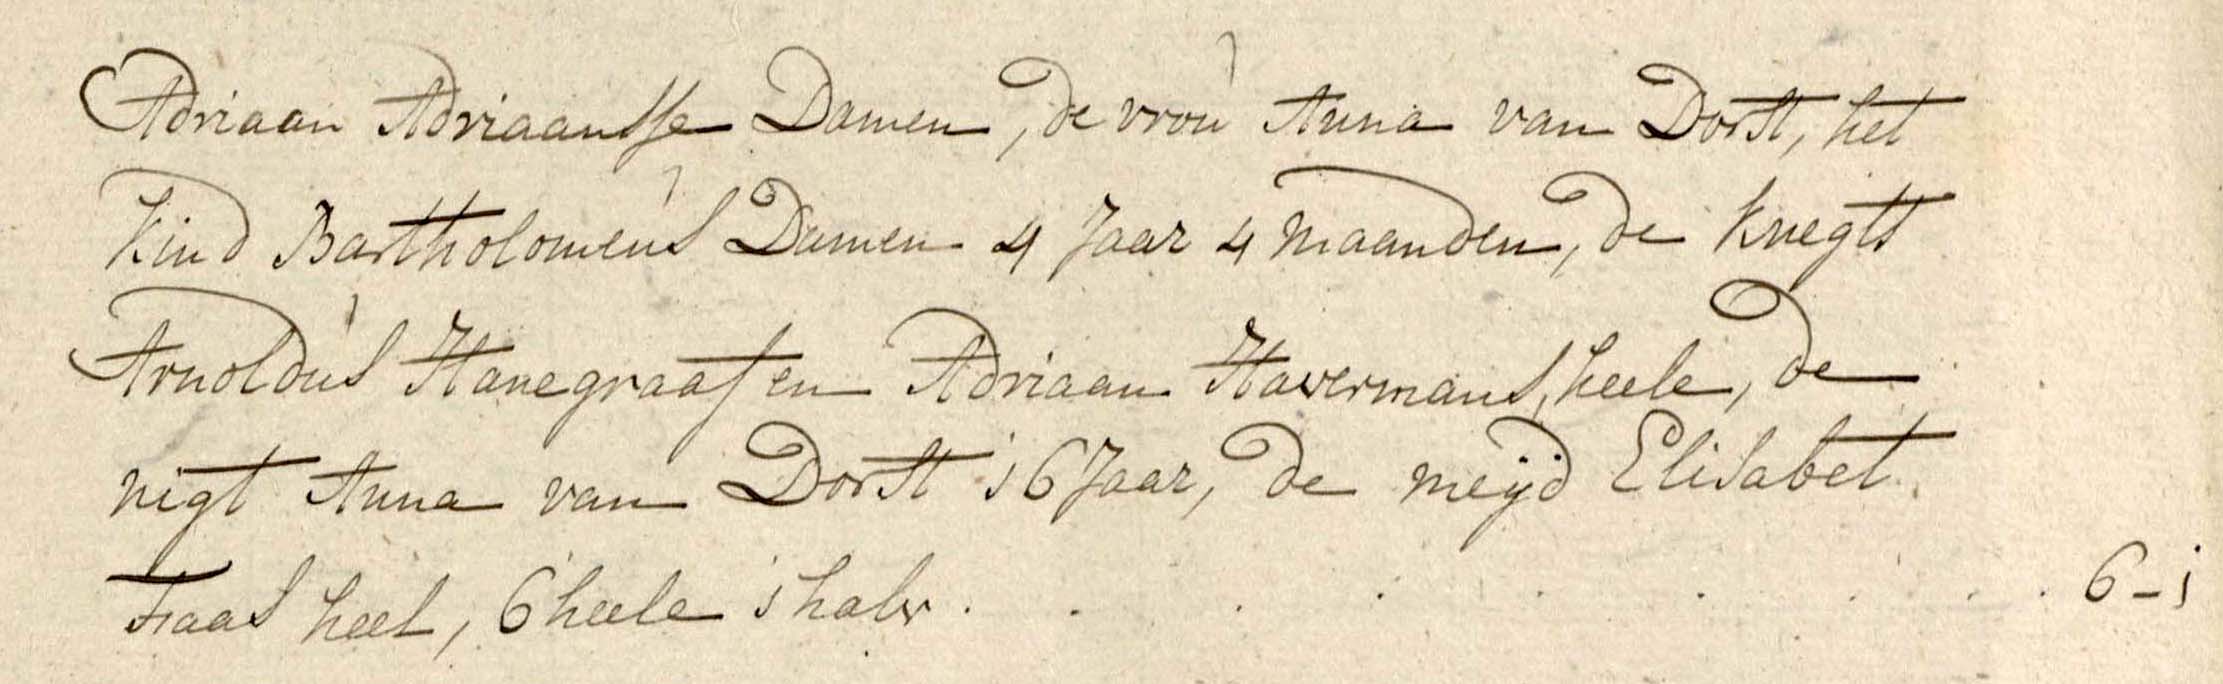 Adriaan Adriaansse Damen, de vrou Anna van Dorst, het
kind Bartholomeus Damen 4 Jaar 4 maanden, de knegts
Arnoldus Hanegraaf en Adriaan Havermans, heele, de
nigt Anna van Dorst i6 Jaar, de meijd Elisabet
heel, 6 heele i halv . . . . . . . . 6-i